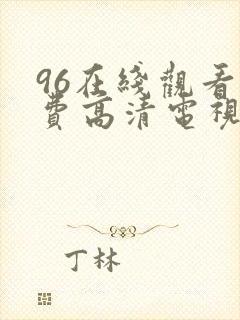 96在綫觀看
費高清電視
丁林